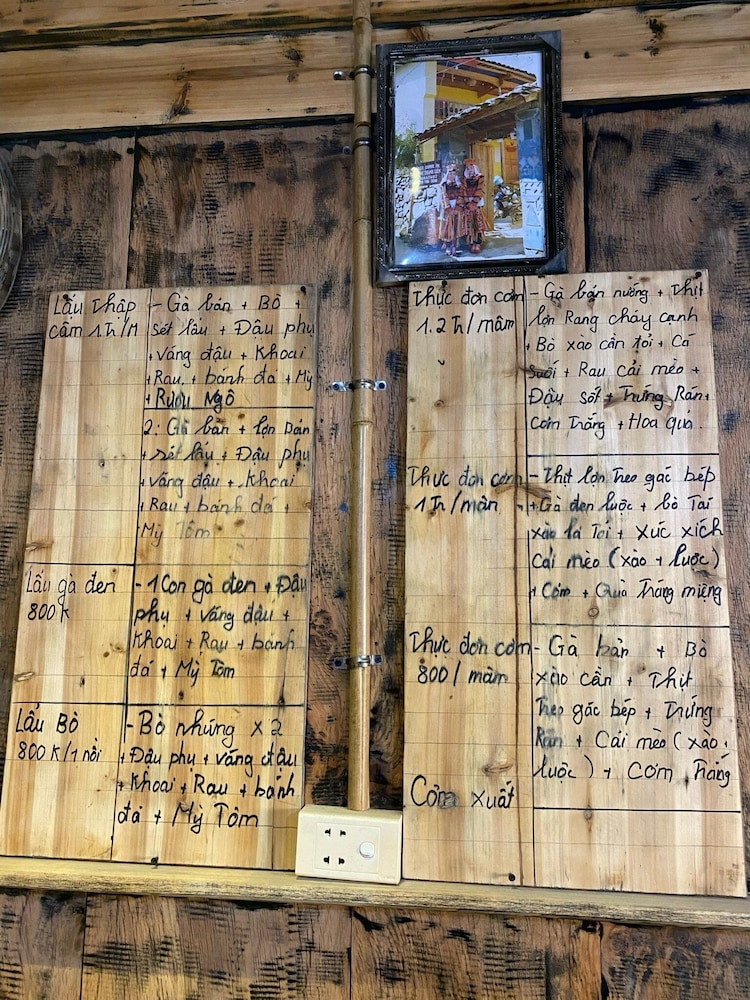 Lẩu Thập
cẩm 1.Tr/M
- Gà bán + Bò +
sét lẩu + Đậu phụ
+ váng đậu + Khoai
+ Rau, + bánh đá + Mỳ
+ Rượu Ngô
2: Gà bản + lợn Bản
+ sét lẩu + Đậu phụ
+ váng đậu + khoai
+ Rau + bánh đá +
Mỳ Tôm
Lẩu gà đen
800 K
- 1 Con gà đen + Đậu
phụ + váng đậu +
Khoai + Rau + bánh
đá + Mỳ Tôm
Lẩu Bò
800 K/1 nồi
- Bò nhúng x 2
+ Đậu phụ + váng đậu
+ Khoai + Rau + bánh
đá + Mỳ Tôm
Thực đơn cơm
1.2 Tr/mâm
- Gà bản nướng + Thịt
lợn Rang cháy cạnh
+ Bò xào cần tỏi + Cá
Suối + Rau cải mèo +
Đậu sốt + Trứng Rán +
Cơm Trắng + Hoa quả.
Thực đơn cơm
1 Tr/mân
- Thịt lợn Treo gác bếp
+ Gà đen luộc + bò Tái
xào lá Tỏi + Xúc xích
Cải mèo (xào + luộc)
+ Cơm + Quả Tráng miệng
Thực đơn cơm
800/mâm
- Gà bản + Bò
xào cần + Thịt
Treo gác bếp + Trứng
Rán + Cải mèo (xào,
luộc) + Cơm Trắng
Cơm xuất